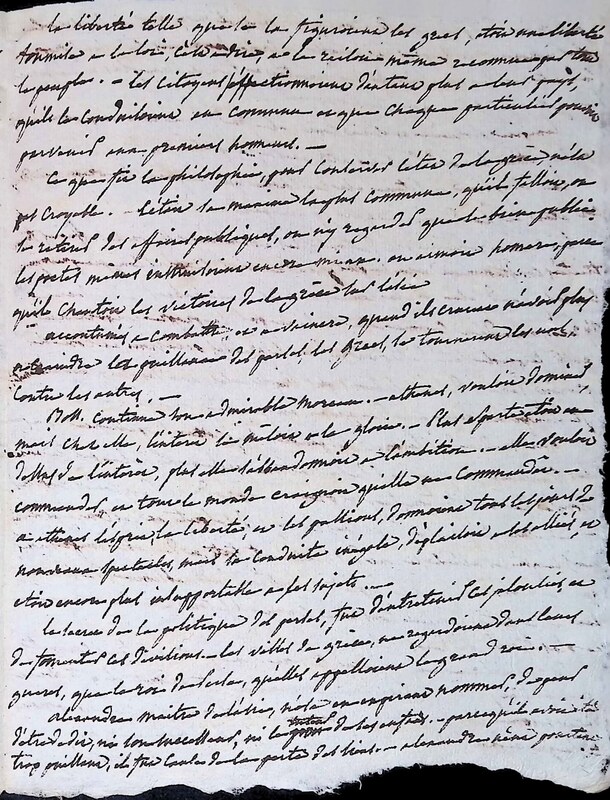 la liberté telle que se la figuroient les grecs, étoit une liberté
soumise a la loi, c'est a dire, a la raison même reconnue par tout
le peuple. — les citoyens s'affectionnoient d'autant plus a leur pays,
qu'ils le conduisoient en commun et que chaque particulier pouvoit
parvenir aux premiers honneurs. —
ce que fit la philosophie, pour conserver l'état de la grèce, n'est
pas croyable. — c'étoit la maxime la plus commune, qu'il falloit, ou
se retirer des affaires publiques, ou n'y regarder que le bien public.
les poetes mêmes instruisoient encore mieux. on aimoit homere, parce
qu'il chantoit les victoires de la grèce sur l'asie
accoutumés a combattre et a vaincre, quand ils crurent n'avoir plus
a craindre la puissance des perses, les grecs, se tournerent les uns,
contre les autres. —
Boss. continue son admirable morceau. — athenes, vouloit dominer
mais chez elle, l'intérêt se mêloit a la gloire. — Plus sparte étoit au
dessus de l'intérêt, plus elle s'abandonnoit a l'ambition. — elle vouloit
commander, et tout le monde craignoit qu'elle ne commandât. —
a athenes l'esprit, la liberté, et les passions, donnoient tous les jours de
nouveaux spectacles, mais sa conduite inégale, déplaisoit a ses alliés, et
étoit encore plus insupportable a ses sujets. —
le secret de la politique des perses, fut d'entretenir ces jalousies, et
de fomenter ces divisions. — les villes de grèce, ne regardoient dans leurs
guerres, que le roi de perse, qu'elles appelloient le grand roi. —
alexandre maitre de l'asie, n'osa en expirant nommer, de peur
d'être dédit, ni son successeur, ni le tuteur de ses enfans. — parce qu'il avoit été
trop puissant, il fut cause de la perte des siens. — alexandre même